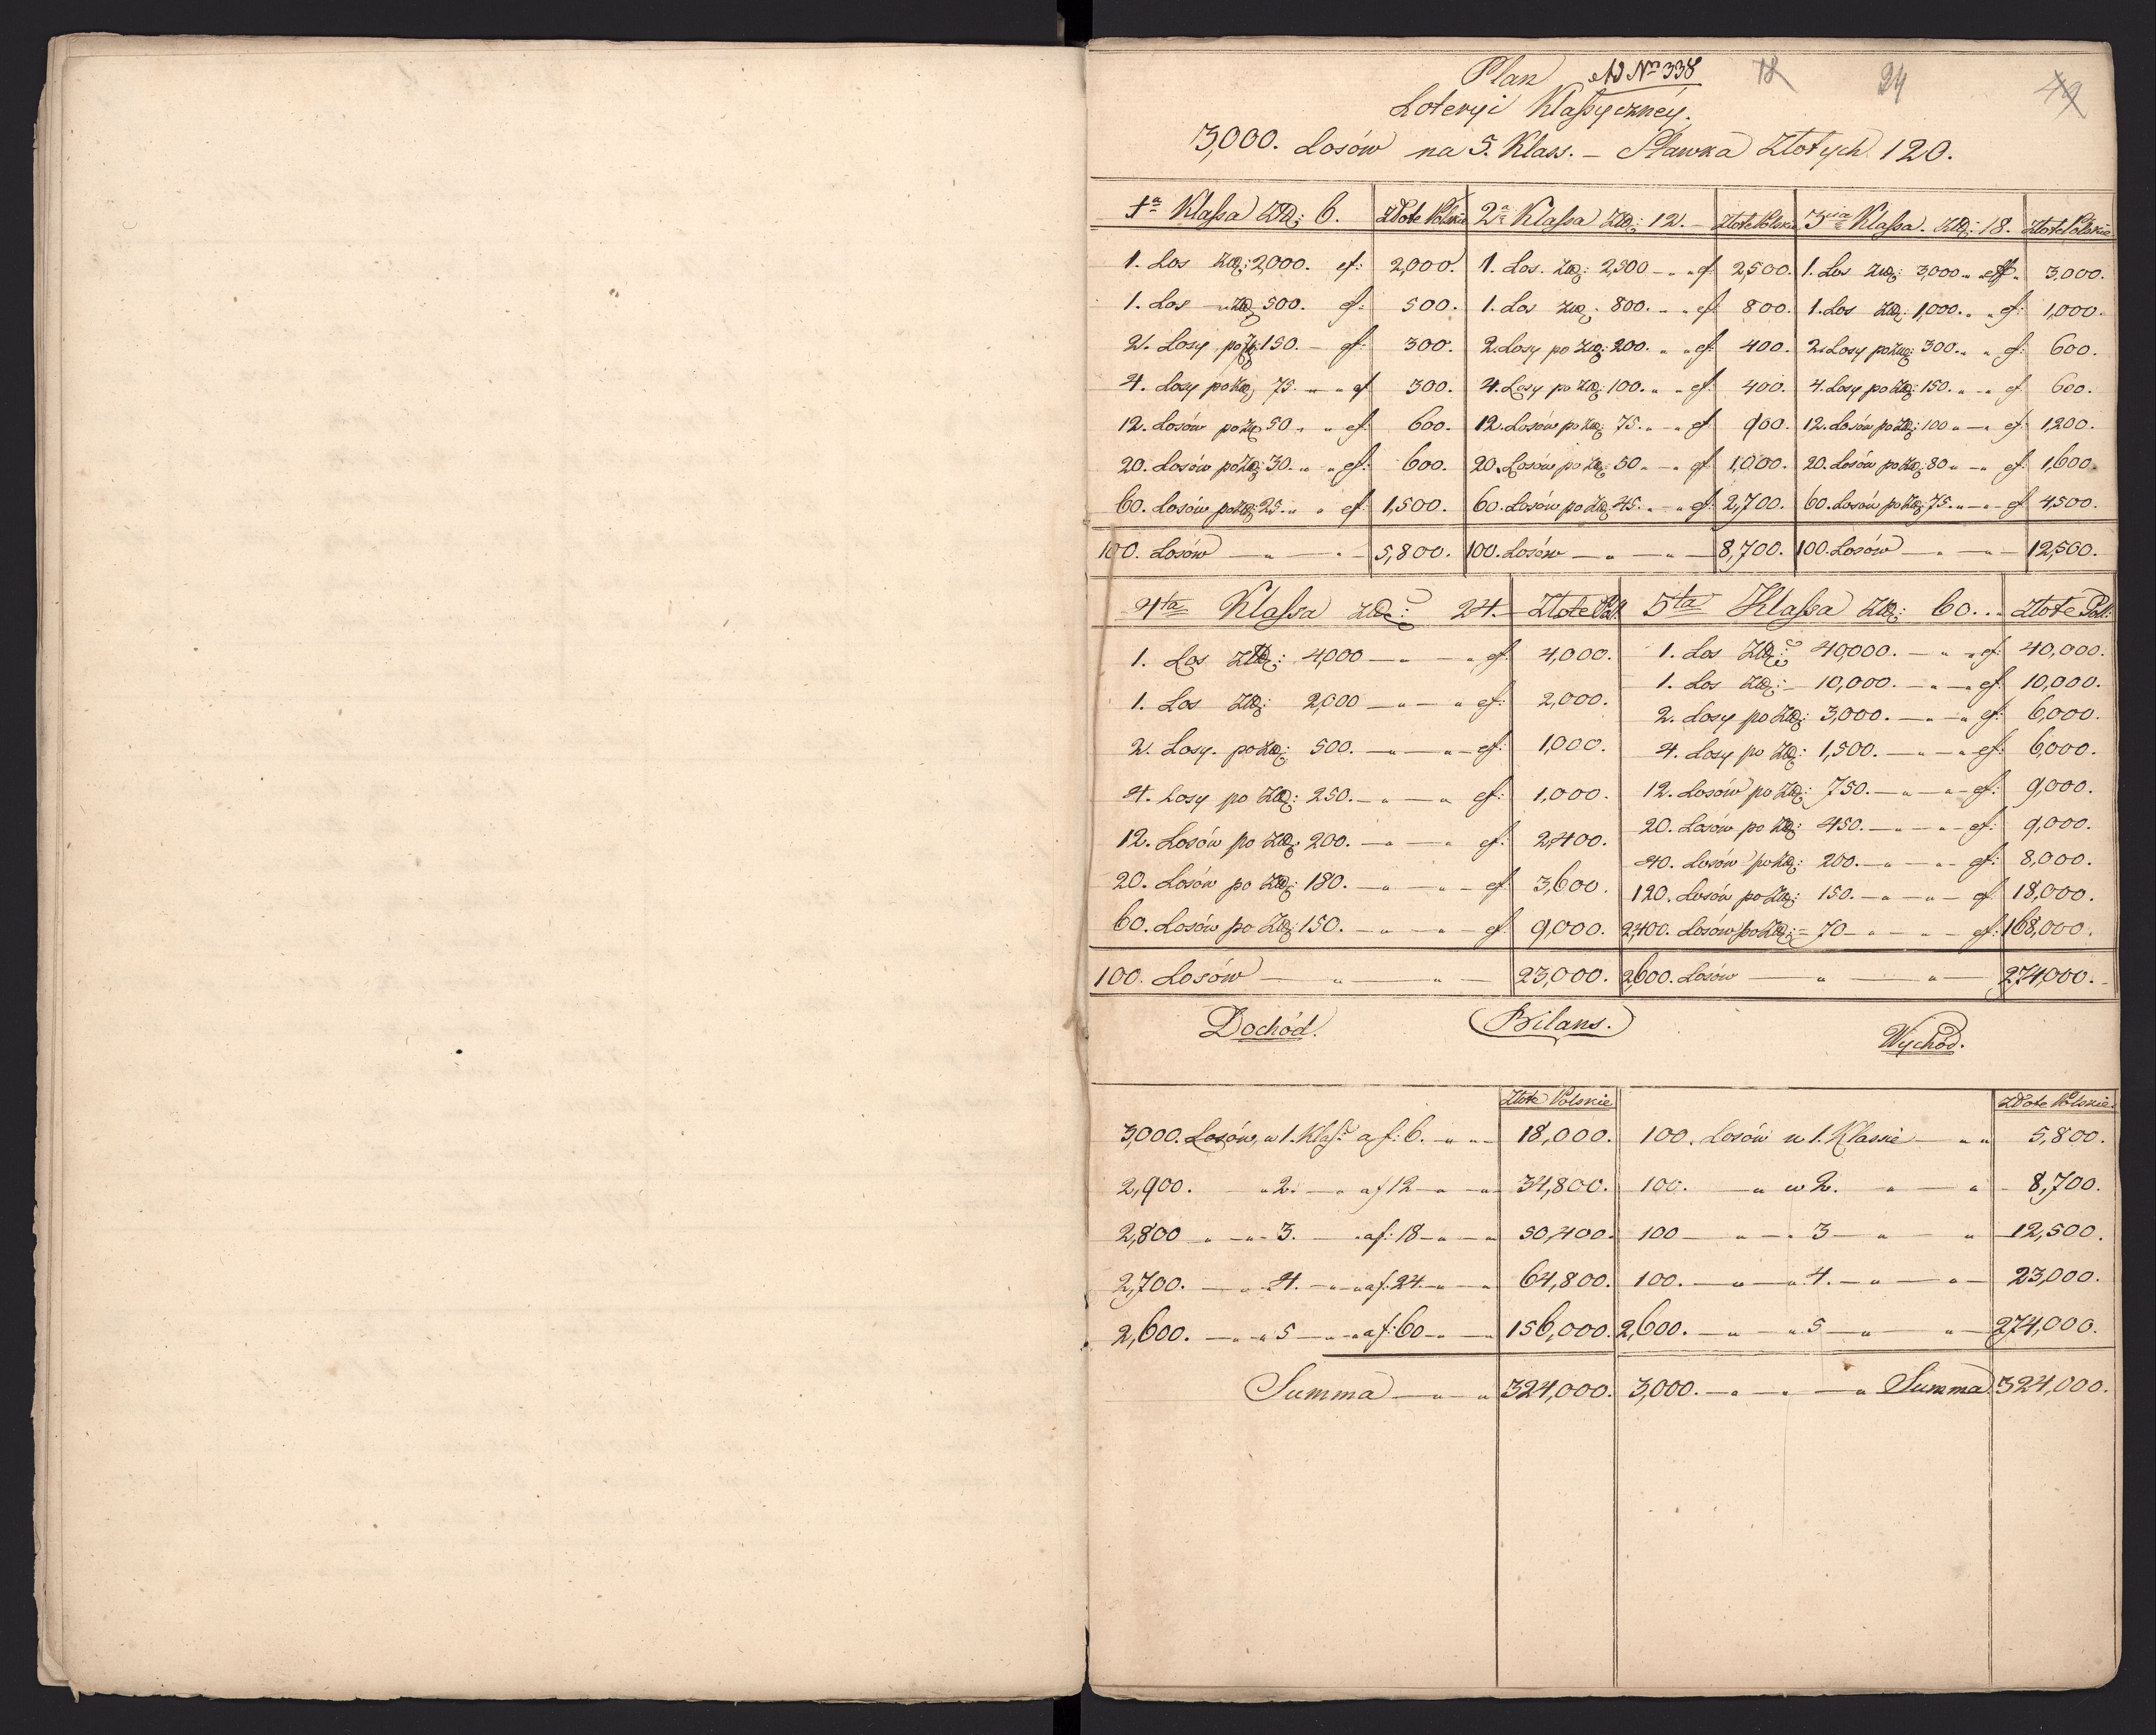 Plan ad Nro 338 78 24 42
Loteryi Klassyczney.
3,000. Losów na 5. Klass. – Stawka Złotych 120.
1a Klassa Złp: 6. Złote Polskie 2a Klassa Złp: 12. – Złote Polskie 3cia Klassa. Złp: 18. Złote Polskie
1. Los Złp: 2,000. ef: 2,000. 1. Los. Złp: 2,500 – „ „ ef: 2,500. 1. Los Złp: 3,000. „ „ eff. 3,000.
1. Los – „ Złp 500. ef: 500. 1. Los Złp: 800. „ „ ef: 800. 1. Los Złp: 1,000. „ „ ef: 1,000.
2. Losy po Złp: 150. – ef: 300. 2. Losy po Złp: 200. „ „ ef: 400. 2. Losy po Złp: 300. „ „ ef: 600.
4. Losy po Złp: 75. – „ ef: 300. 4. Losy po Złp: 100. „ „ ef: 400. 4. Losy po Złp: 150. „ – „ ef: 600.
12. Losów po Złp 50. „ „ ef: 600. 12. Losów po Złp: 75. „ – „ ef: 900. 12. Losów po Złp: 100 „ – „ ef: 1,200.
20. Losów po Złp: 30. „ „ ef: 600. 20. Losów po Złp: 50 „ – „ ef: 1,000. 20. Losów po Złp: 80 „ – „ ef: 1,600.
60. Losów po Złp: 25. „ „ ef: 1,500. 60. Losów po Złp: 45. „ – „ ef: 2,700. 60. Losów po Złp: 75. „ – „ ef: 4,500.
100. Losów – „ – „ – 5,800. 100. Losów – „ – „ – 8,700. 100. Losów – „ – „ – 12,500.
4ta Klassa Złp: 24. – Złote Pol. 5ta Klassa Złp: 60. „ Złote Pol:
1. Los Złp: 4,000 – „ – „ ef: 4,000. 1. Los Złp: 40,000. – „ – „ ef: 40,000.
1. Los Złp: – 10,000. – „ – „ ef: 10,000.
1. Los Złp: 2,000 – „ – „ ef: 2,000.
2. Losy po Złp: 3,000. – „ – „ ef: 6,000.
2. Losy. po Złp: 500. – „ – „ – ef: 1,000. 4. Losy po Złp: 1,500. – „ – „ ef: 6,000.
4. Losy po Złp: 250. – „ – „ ef: 1,000. 12. Losów po Złp: 750. – „ – „ – ef: 9,000.
12. Losów po Złp: 200. – „ – „ ef: 2,400. 20. Losów po Złp: 450. – „ – „ – ef: 9,000.
40. Losów po Złp: 200. – „ – „ – ef: 8,000.
20. Losów po Złp: 180. – „ – „ – ef: 3,600. 120. Losów po Złp: 150. – „ – „ – ef: 18,000.
60. Losów po Złp: 150. – „ – „ – ef: 9,000. 2,400. Losów po Złp: = 70 – „ – „ – ef: 168,000.
100. Losów – „ – „ – 23,000. 2,600. Losów – „ – „ – 274,000.
Dochód. Bilans. Wychód.
Złote Polskie Złote Polskie
3,000. Losów, w 1. Klass: a f: 6. „ „ – 18,000. 100. Losów w 1. Klassie – „ „ 5,800.
2,900. – „ 2. – „ a f 12 – „ – „ 34,800. 100. – „ w 2. „ – „ – 8,700.
2,800 „ – „ – 3. – „ a f: 18 – „ – „ 50,400. 100 – „ – „ 3 – „ – „ 12,500.
2,700. – „ – 4. – „ – „ a f. 24 – „ – „ 64,800. 100. – „ – „ 4. – „ – „ – 23,000.
2,600. – „ – „ 5 – „ – „ a f: 60 – „ – „ 156,000. 2,600. – „ – „ 5 – „ – „ – 274,000.
Summa – „ – „ 324,000. 3,000. – „ – „ – „ Summa 324,000.